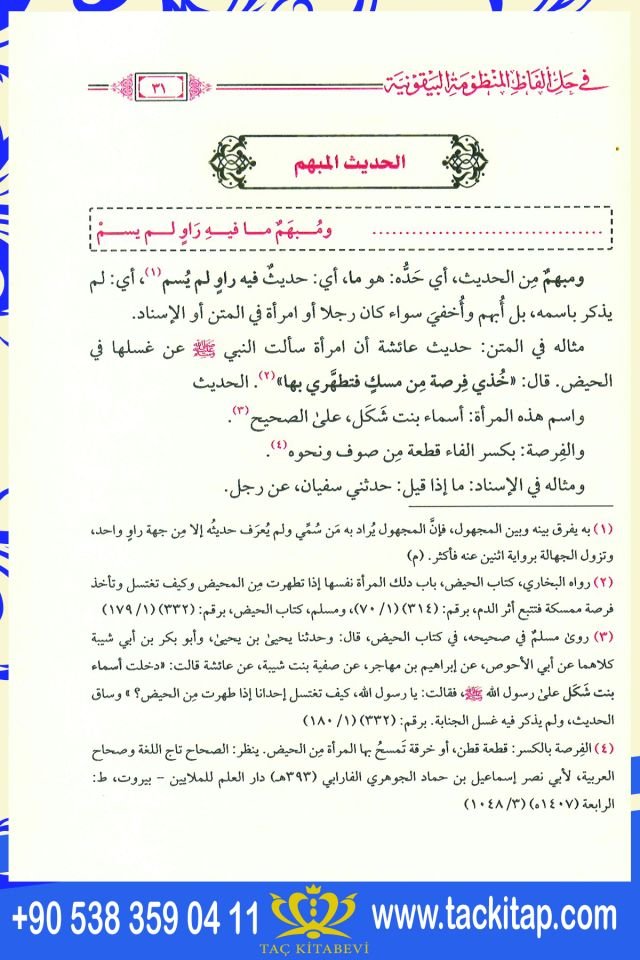 في حل ألفاظ المنظومة البيقونية
٣١
الحديث المبهم
................................ ومُـبهَمٌ مـا فيـهِ رَاوٍ لـم يسـمْ
ومبهمٌ مِن الحديث، أي حَدُّه: هو ما، أي: حديثٌ فيه راوٍ لم يُسم(١)، أي: لم
يذكر باسمه، بل أُبهم وأُخفيَ سواء كان رجلا أو امرأة في المتن أو الإسناد.
مثاله في المتن: حديث عائشة أن امرأة سألت النبي ﷺ عن غسلها في
الحيض. قال: «خُذي فِرصة مِن مسكٍ فتطهَّري بها»(٢). الحديث
واسم هذه المرأة: أسماء بنت شَكَل، علىٰ الصحيح(٣).
والفِرصة: بكسر الفاء قطعة مِن صوف ونحوه(٤).
ومثاله في الإسناد: ما إذا قيل: حدثني سفيان، عن رجل.
(١) به يفرق بينه وبين المجهول، فإنَّ المجهول يُراد به مَن سُمِّي ولم يُعرَف حديثُه إلا مِن جهة راوٍ واحد،
وتزول الجهالة برواية اثنين عنه فأكثر. (م)
(٢) رواه البخاري، كتاب الحيض، باب دلك المرأة نفسها إذا تطهرت مِن المحيض وكيف تغتسل وتأخذ
فرصة ممسكة فتتبع أثر الدم، برقم: (٣١٤) (١/ ٧٠)، ومسلم، كتاب الحيض، برقم: (٣٣٢) (١/ ١٧٩)
(٣) روىٰ مسلمٌ في صحيحه، في كتاب الحيض، قال: وحدثنا يحيىٰ بن يحيىٰ، وأبو بكر بن أبي شيبة
كلاهما عن أبي الأحوص، عن إبراهيم بن مهاجر، عن صفية بنت شيبة، عن عائشة قالت: «دخلت أسماء
بنت شَكَل علىٰ رسول الله ﷺ، فقالت: يا رسول الله، كيف تغتسل إحدانا إذا طهرت مِن الحيض؟ » وساق
الحديث، ولم يذكر فيه غسل الجنابة. برقم: (٣٣٢) (١/ ١٨٠)
(٤) الفِرصة بالكسر: قطعة قطن، أو خرقة تَمسحُ بها المرأة مِن الحيض. ينظر: الصحاح تاج اللغة وصحاح
العربية، لأبي نصر إسماعيل بن حماد الجوهري الفارابي (٣٩٣هـ) دار العلم للملايين - بيروت، ط:
الرابعة (١٤٠٧ه) (٣/ ١٠٤٨)
+90 538 359 04 11
TAÇ KİTABEVİ
www.tackitap.com